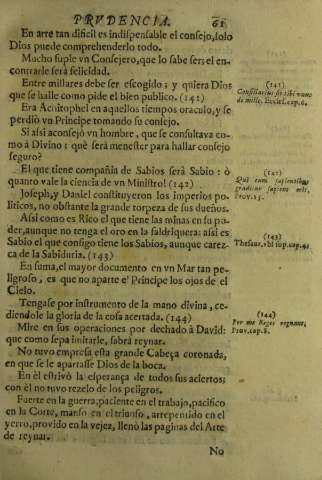 PRVDENCIA. 61
En arte tan dificil es indispensable el consejo, solo
Dios puede comprehenderlo todo.
Mucho suple vn Consejero, que lo sabe ser: el en-
contrarle será felicidad.
Entre millares debe ser escogido; y quiera Dios
que se halle como pide el bien publico. (141)
Era Achitophel en aquellos tiempos oraculo, y se
perdió vn Principe tomando su consejo.
Si assi aconsejó vn hombre, que se consultava co-
mo á Divino: què serà menester para hallar consejo
seguro?
El que tiene compañia de Sabios serà Sabio: ò
quanto vale la ciencia de vn Ministro! (142)
Joseph, y Daniel constituyeron los imperios po-
liticos, no obstante la grande torpeza de sus dueños.
Assi como es Rico el que tiene las minas en su po-
der, aunque no tenga el oro en la faldriquera: assi es
Sabio el que consigo tiene los Sabios, aunque carez-
ca de la Sabiduria. (143)
En suma, el mayor documento en vn Mar tan pe-
ligroso, es que no aparte el Principe los ojos de el
Cielo.
Tengase por instrumento de la mano divina, ce-
diendole la gloria de la cosa acertada. (144)
Mire en sus operaciones por dechado à David:
que como sepa imitarle, sabrà reynar.
No tuvo empresa esta grande Cabeça coronada,
en que se le apartasse Dios de la boca.
En èl estrivò la esperança de todos sus aciertos;
con èl no tuvo rezelo de los peligros.
Fuerte en la guerra; paciente en el trabajo, pacifico
en la Corte, manso en el triunfo, arrepentido en el
yerro, provido en la vejez, llenò las paginas del Arte
de reynar.
No
(141)
Consiliarius sit tibi unus
de mille. Eccles. cap. 6.
(142)
Qui cum sapientibus
graditur sapiens erit,
Prov. 13.
(143)
Thesaur. vbi sup. cap. 4.
(144)
Per me Reges regnant,
Prov. cap. 8.